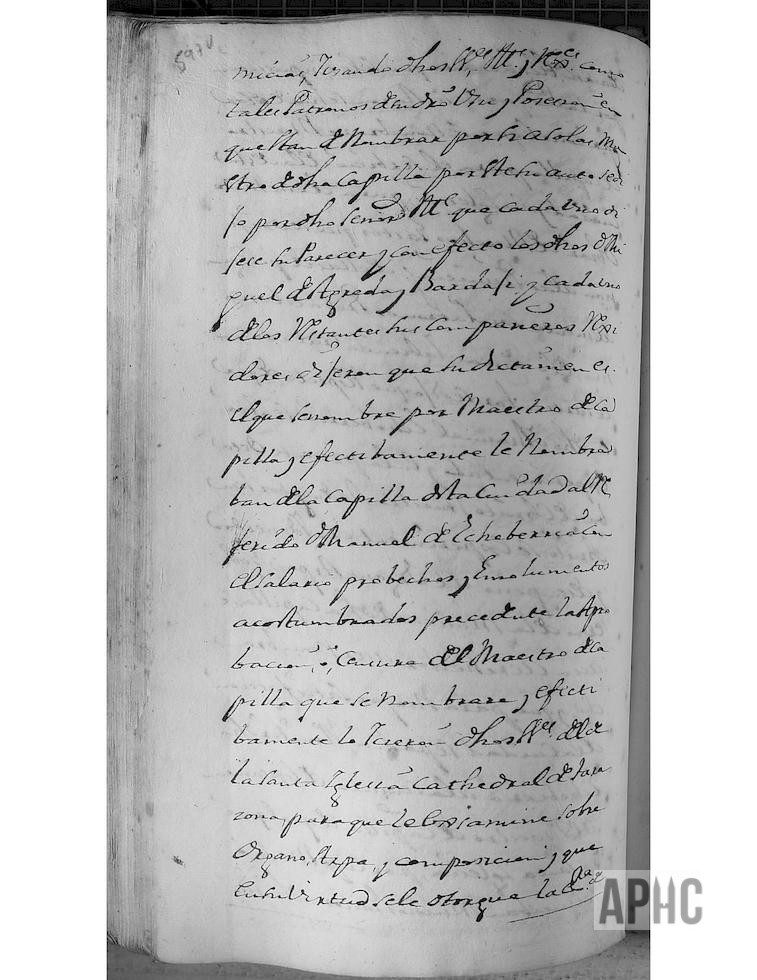 597v
micias, Usando dhos Sres Alc. y Rex.es como
tales Patronos de su dro Uso y Posesion en
que estan de Nombrar por si a solas Ma
stro de dha Capilla por Ste su auto se di
jo por dho Senor Alc. que cada Uno di
jese su Parecer y con efecto los dhos Dn Mi
guel de Agreda y Bardaji y cada uno
de los Restantes sus Companeros Rexi
dores dijeron que su dictamen es
el que se nombre por Maestro de Ca
pilla y efectibamente le Nombra
ban de la Capilla desta Ciudad al Re
ferido Dn Manuel de Echeberria con
el salario probechos y Emolumentos
acostumbrados precedente la Apro
bacion, o, Censura del Maestro de Ca
pilla que se Nombrare y efecti
bamente lo Icieron dhos SSres al de
la Santa Iglesia Cathedral de Tara
zona, para que le Exsamine sobre
Organo, Arpa, y composicion y que
en su Virtud se le otorgue la
APHC